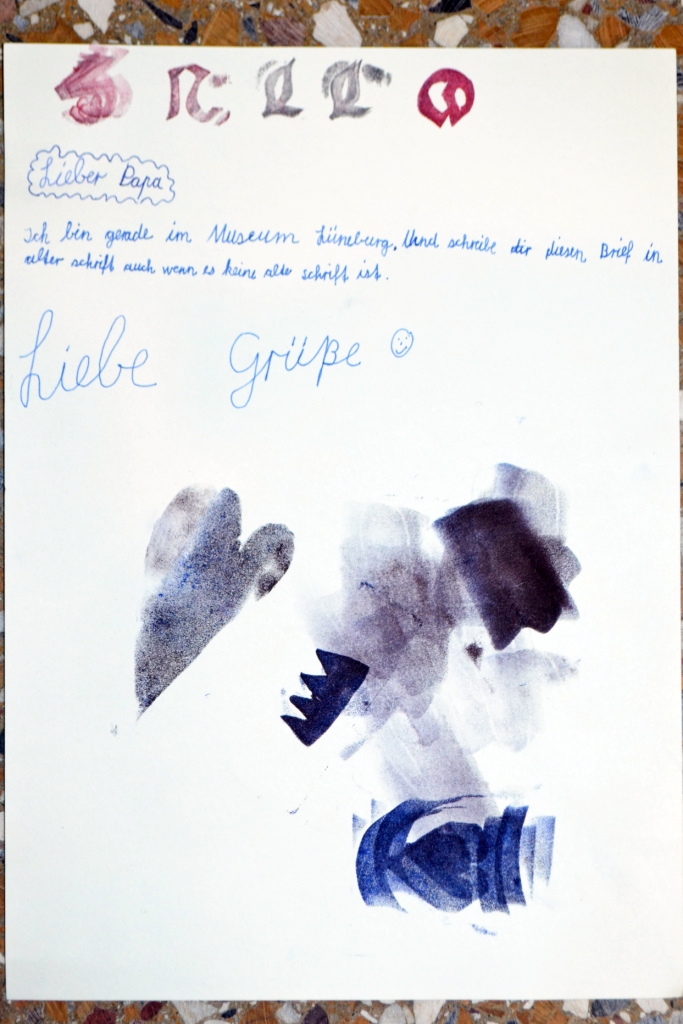 Lieber Papa
Ich bin gerade im Museum Lüneburg. Und schreibe dir diesen Brief in
alter schrift auch wenn es keine alte schrift ist.
Liebe Grüße